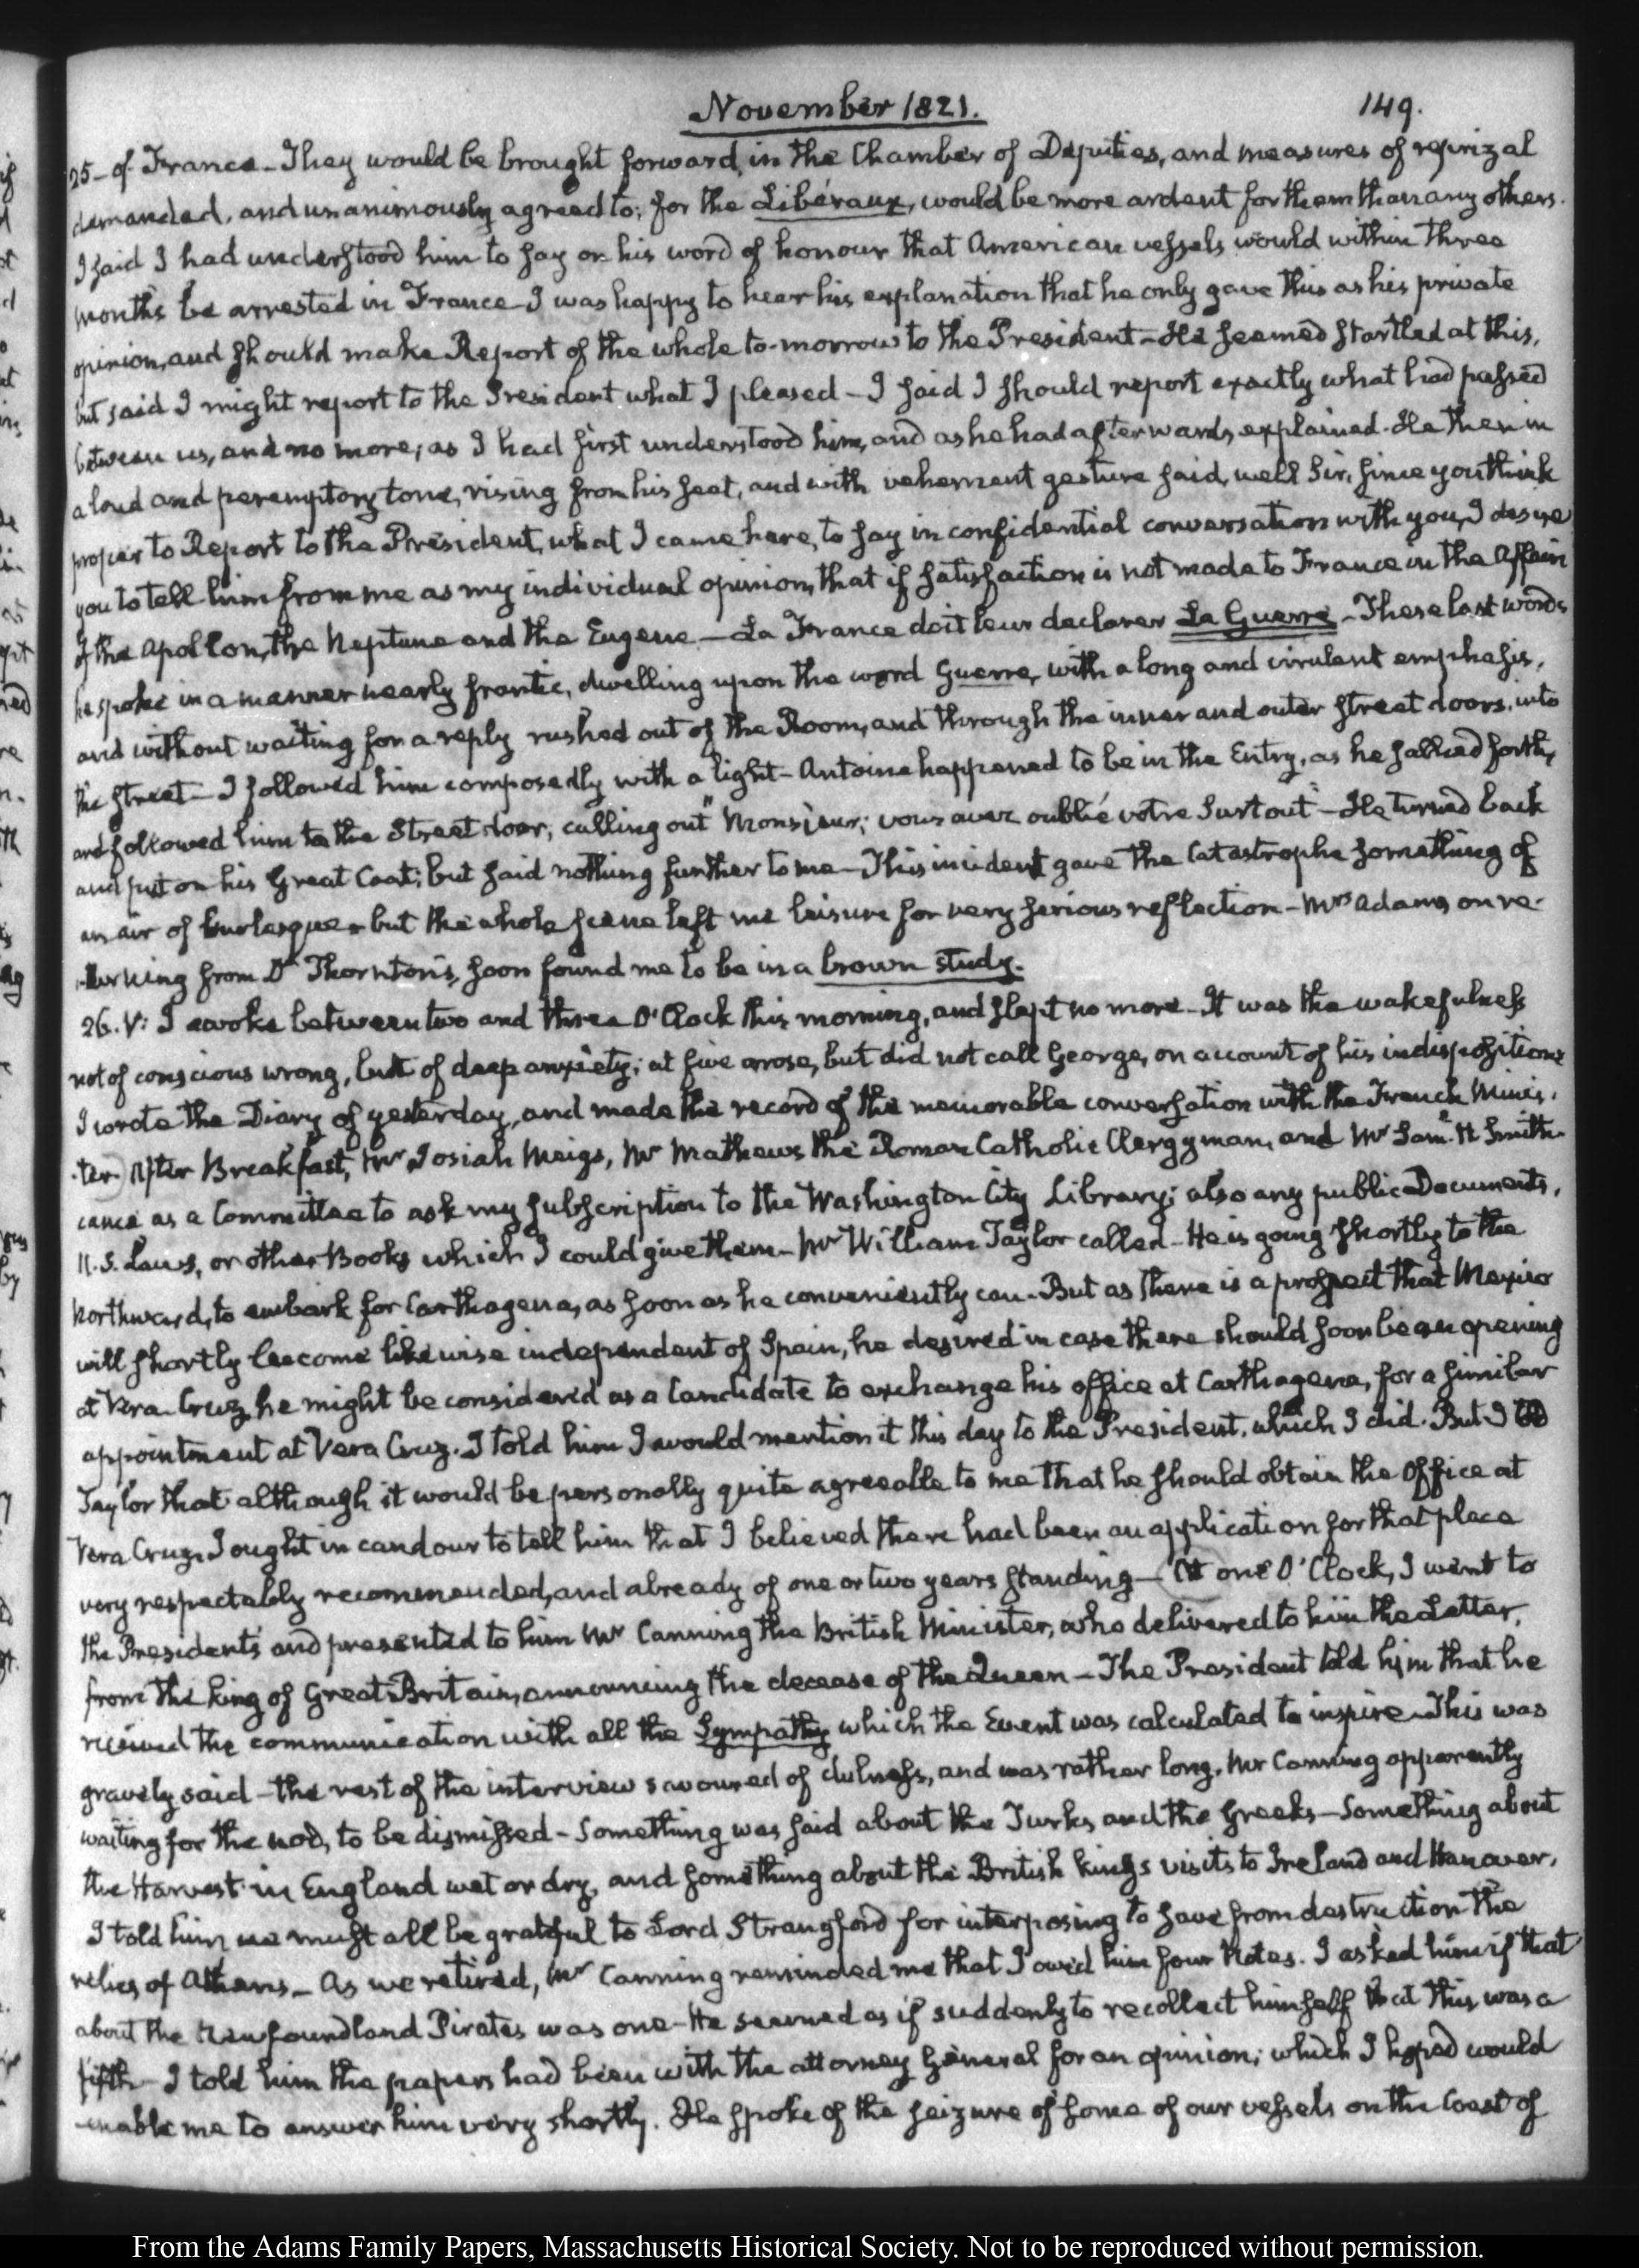 November 1821.
149.
25 - of France - They would be brought forward in the Chamber of Deputies, and measures of reprizal
demanded, and unanimously agreed to; for the Libéraux, would be more ardent for them than any others.
I said I had understood him to say on his word of honour that American vessels would within three
months be arrested in France - I was happy to hear his explanation that he only gave this as his private
opinion, and should make Report of the whole to-morrow to the President - He seemed startled at this,
but said I might report to the President what I pleased - I said I should report exactly what had passed
between us, and no more; as I had first understood him, and as he had afterwards explained. He then in
a loud and peremptory tone, rising from his seat, and with vehement gesture said, well Sir, since you think
proper to Report to the President, what I came here, to say in confidential conversation with you, I desire
you to tell him from me as my individual opinion, that if satisfaction is not made to France in the affair
of the Apollon, the Neptune and the Eugene - La France doit leur declarer La Guerre - These last words
he spoke in a manner nearly frantic, dwelling upon the word Guerre, with a long and virulent emphasis,
and without waiting for a reply rushed out of the Room, and through the inner and outer street doors, into
the street - I followed him composedly with a light - Antoine happened to be in the Entry, as he sallied forth,
and followed him to the Street door, calling out "Monsieur; vous avez oublié votre Surtout" - He turned back
and put on his Great Coat; but said nothing further to me - This incident gave the Catastrophe something of
an air of burlesque - but the whole scene left me leisure for very serious reflection - Mrs Adams on re-
-turning from Dr Thornton's, soon found me to be in a brown study.
26. V: I awoke between two and three O'Clock this morning, and slept no more - It was the wakefulness
not of conscious wrong, but of deep anxiety; at five arose, but did not call George, on account of his indisposition.
I wrote the Diary of yesterday, and made the record of the memorable conversation with the French Minis-
-ter. After Breakfast, Mr Josiah Meigs, Mr Mathews the Roman Catholic Clergyman, and Mr Saml. H Smith
came as a Committee to ask my subscription to the Washington City Library; also any public Documents,
U.S. Laws, or other Books which I could give them - Mr William Taylor called - He is going shortly to the
Northward, to embark for Carthagena, as soon as he conveniently can. But as there is a prospect that Mexico
will shortly become likewise independent of Spain, he desired in case there should soon be an opening
at Vera-Cruz, he might be considered as a Candidate to exchange his office at Carthagena, for a similar
appointment at Vera Cruz. I told him I would mention it this day to the President, which I did. But I told
Taylor that although it would be personally quite agreeable to me that he should obtain the Office at
Vera Cruz, I ought in candour to tell him that I believed there had been an application for that place
very respectably recommended, and already of one or two years standing - At one O'Clock, I went to
the Presidents and presented to him Mr Canning the British Minister, who delivered to him the Letter,
from the king of Great-Britain, announcing the decease of the Queen - The President told him that he
received the communication with all the Sympathy which the Event was calculated to inspire. This was
gravely said - the rest of the interview savoured of dulness, and was rather long, Mr Canning apparently
waiting for the nod, to be dismissed - Something was said about the Turks, and the Greeks - Something about
the Harvest in England wet or dry, and something about the British king's visits to Ireland and Hanover.
I told him we must all be grateful to Lord Strangford for interposing to save from destruction the
relics of Athens - As we retired, Mr Canning reminded me that I owed him four Notes. I asked him if that
about the Newfoundland Pirates was one - He seemed as if suddenly to recollect himself that this was a
fifth - I told him the papers had been with the attorney General for an opinion; which I hoped would
enable me to answer him very shortly. He spoke of the seizure of some of our vessels on the Coast of
From the Adams Family Papers, Massachusetts Historical Society. Not to be reproduced without permission.